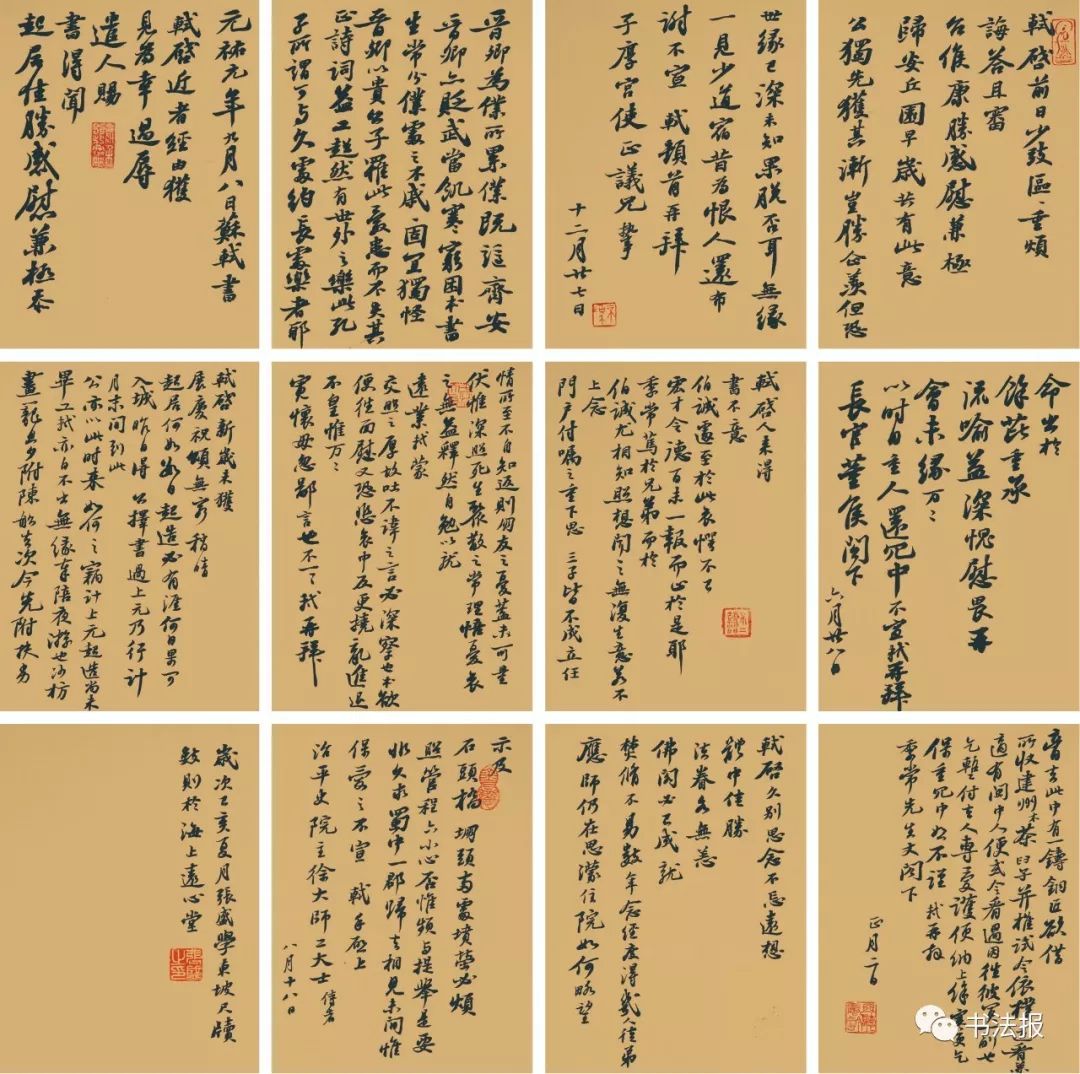 軾啓前日少致區區重煩
誨答且審
台候康勝感慰兼極
歸安丘園早歲共有此意
公獨先獲其漸豈勝企羨但恐
世緣已深未知果脫否耳無緣
一見少道宿昔為恨人還布
謝不宣軾頓首再拜
子厚宮使正議兄執事
十二月廿七日
晉卿為僕所累僕既謫齊安
晉卿亦貶武當飢寒窮困本書
生常分僕處之不戚戚固宜獨怪
晉卿以貴公子罹此憂患而不失其
正詩詞益工超然有世外之樂此孔
子所謂可與久處約長處樂者耶
元祐元年九月八日蘇軾書
軾啓近者經由獲
見為幸過辱
遣人賜
書得聞
起居佳勝感慰兼極忝
命出於
餘芘重承
流喻益深愧慰畏再
會未緣萬萬
以時自重人還冗中不宣軾再拜
長官董侯閣下
六月廿八日
軾啓人來得
書不意
伯誠遽至於此哀愕不已
宏才令德百未一報而止於是耶
季常篤於兄弟而於
伯誠尤相知照想聞之無復生意若不
上念
門户付囑之重下思 三子皆不成立任
情所至不自知返則朋友之憂蓋未可量
伏惟深照死生聚散之常理悟憂哀
之無益釋然自勉以就
遠業軾蒙
交照之厚故吐不諱之言必深察也本欲
便往面慰又恐悲哀中反更撓亂進退
不皇惟萬萬
寬懷毋忽鄙言也不一一軾再拜
軾啓新歲未獲
展慶祝頌無窮稍晴
起居何如數日起造必有涯何日果可
入城昨日得公擇書過上元乃行計
月末間到此
公亦以此時來如何之竊計上元起造尚未
畢工軾亦自不出無緣奉陪夜遊也沙枋
畫籠旦夕附陳船去次今先附扶劣
膏去此中有一鑄銅匠欲借
所收建州木茶臼子并椎試令依樣造看兼
適有閩中人便或令看過因往彼買一副也
乞暫付去人專愛護便納上餘寒更乞
保重冗中恕不謹軾再拜
季常先生丈閣下
正月二日
軾啓久別思念不忘遠想
體中佳勝
法眷各無恙
佛閣必已成就
焚脩不易數年念經度得幾人徒弟
應師仍在思濛住院如何略望
示及
石頭橋堋頭兩處墳塋必煩
照管程六小心否惟頻與提舉是要
非久求蜀中一郡歸去相見未間惟
保愛之不宣 軾手啓上
治平史院主徐大師二大士 侍者
八月十八日
歲次己亥夏月張盛學東坡尺牘
數則於海上遠心堂
书法报